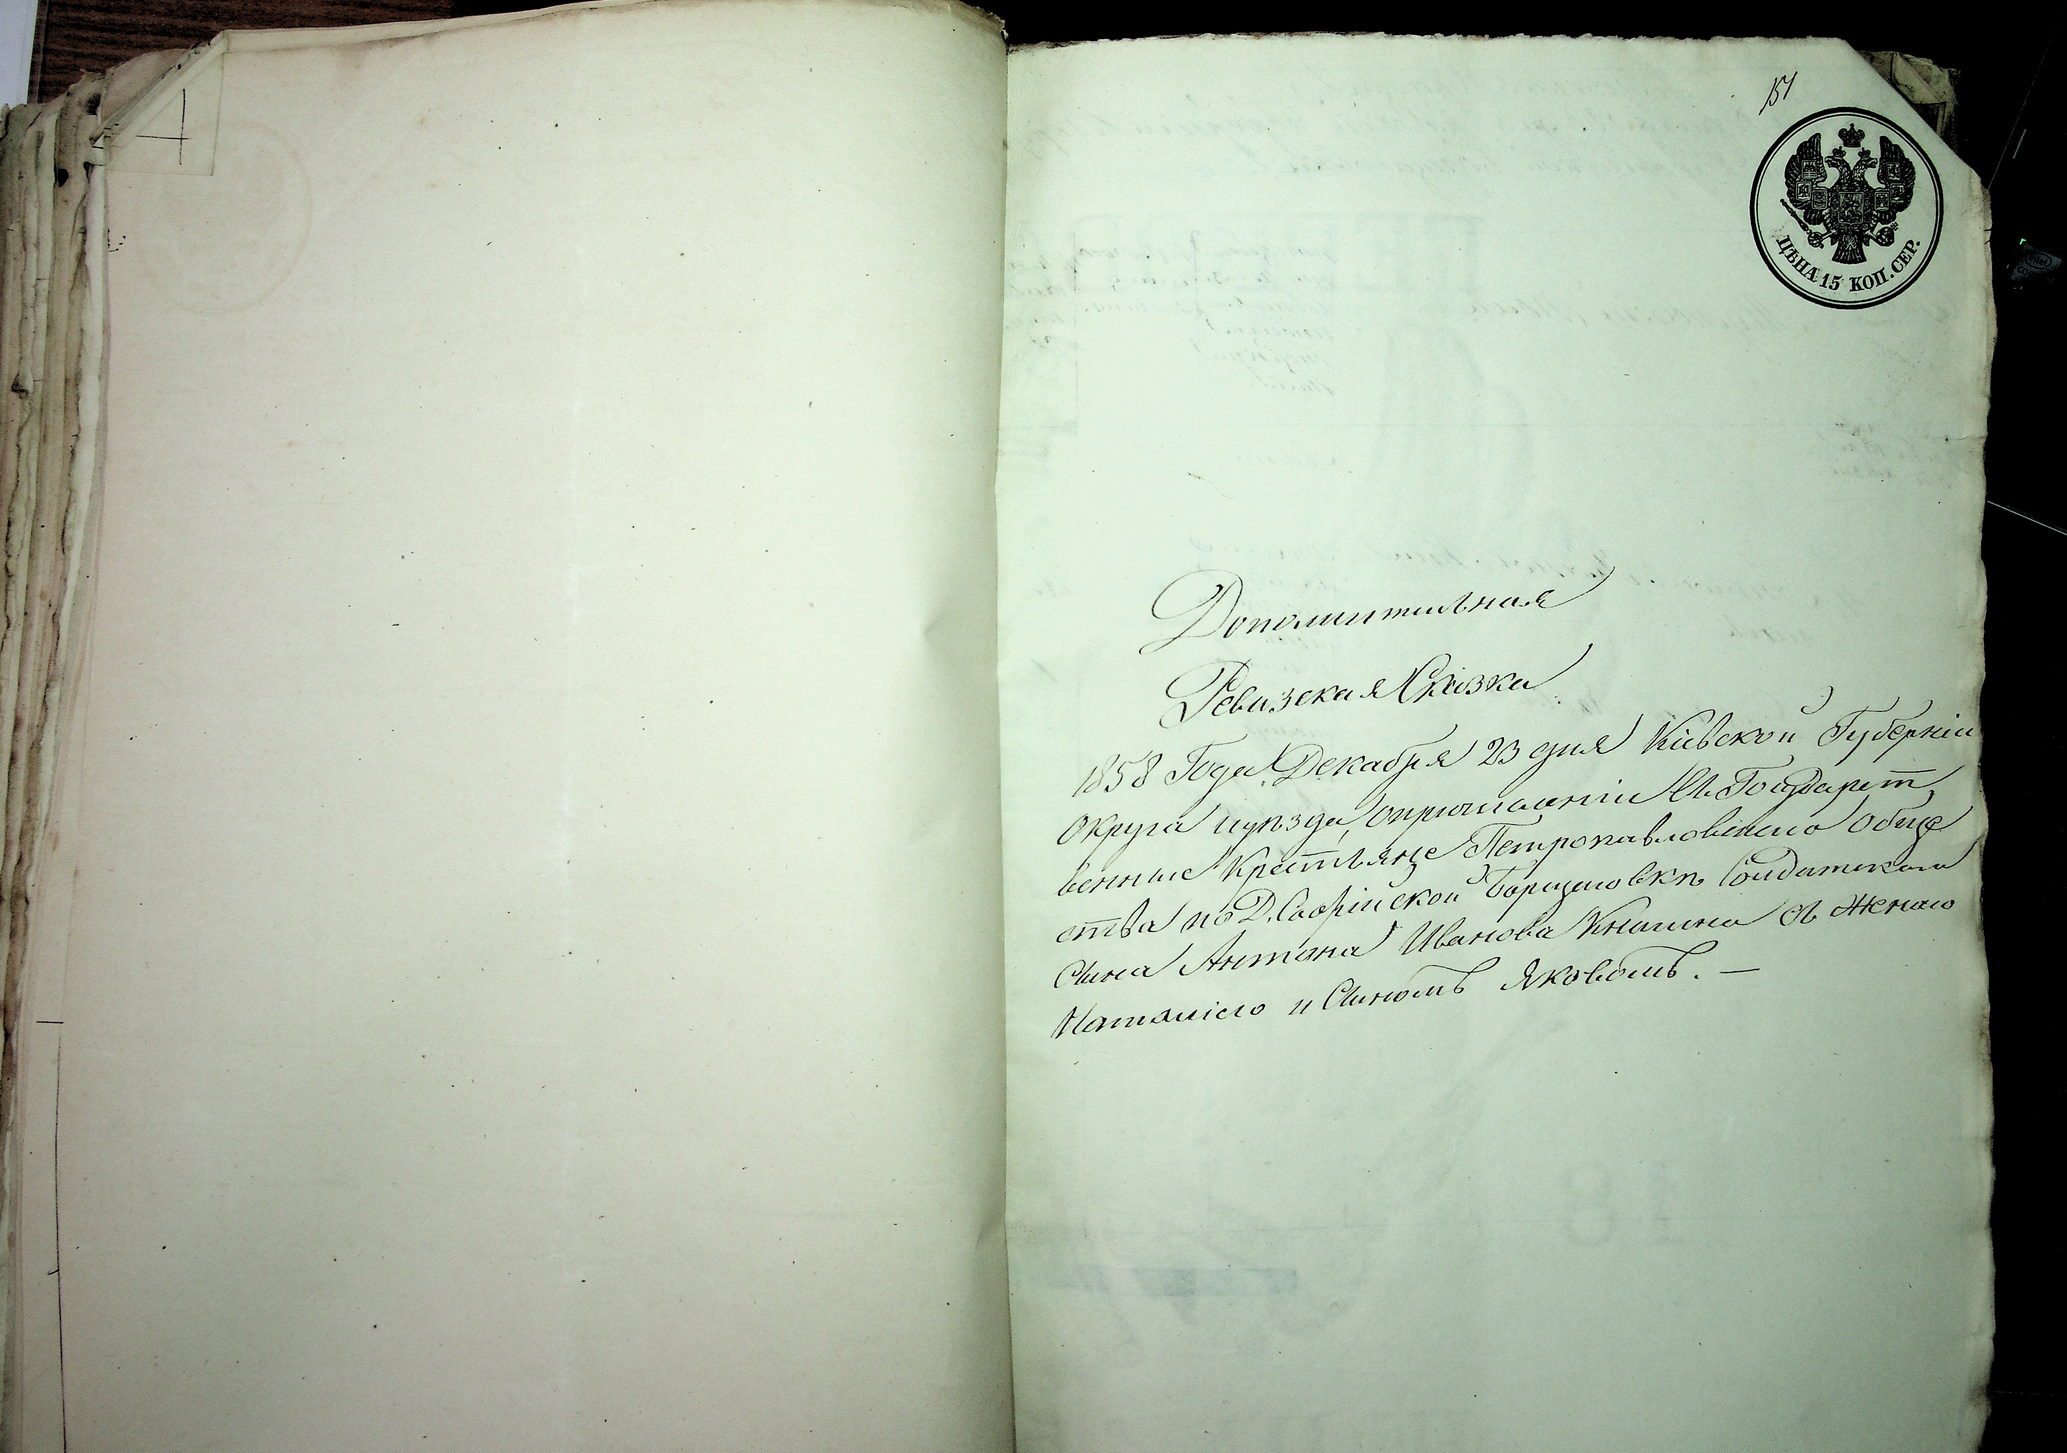 151
ЦѢНА 15 КОП. СЕР.
Дополнительная
Ревизская Сказка
1858 Года Декабря 23 дня Кіевской Губерніи
Округа и уѣзда, опричисленіи въ Государст
венные Крестьяне Петропавловскаго обще
ства по Д. Софіиской Борщаговкѣ Солдатскаго
Сына Антона Иванова съ женою
Наталіею и Сыномъ Яковомъ. —